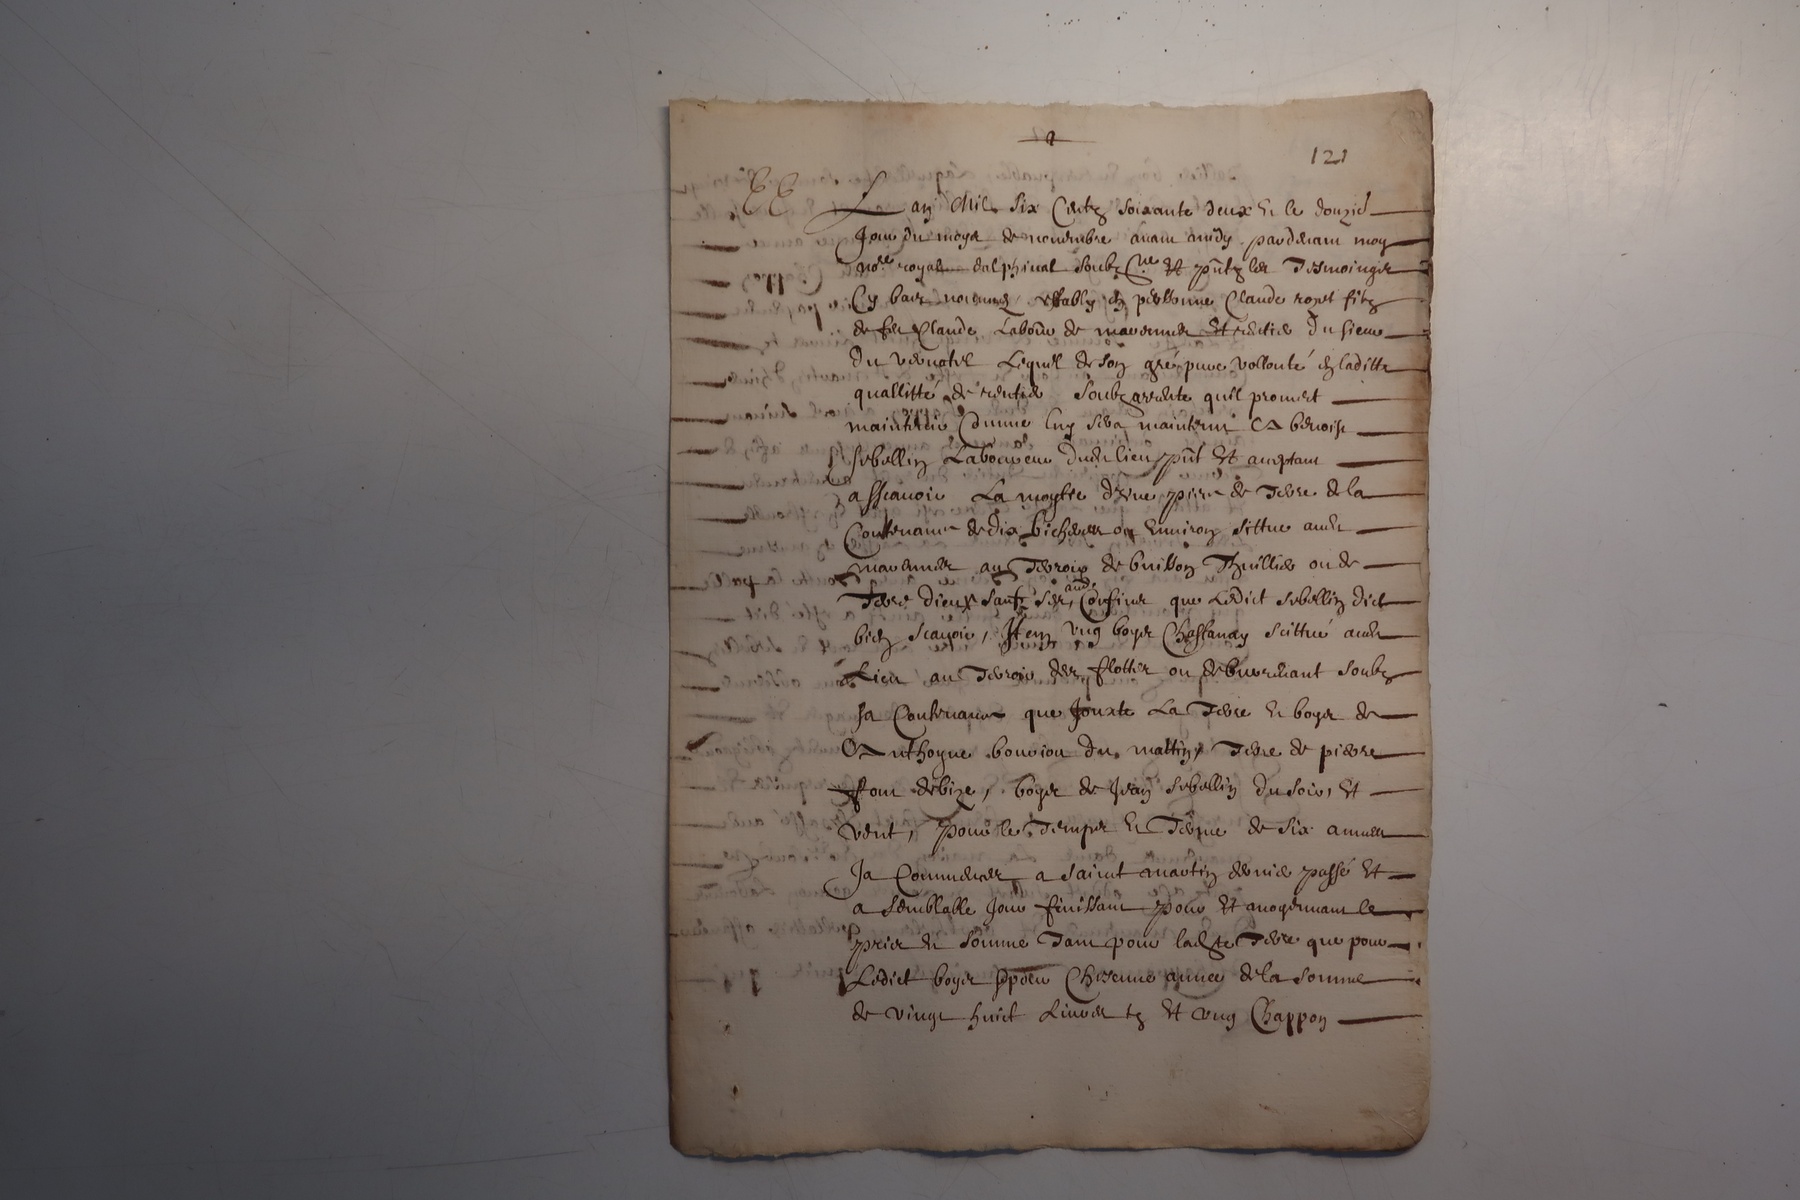 121
L an Mil six Centz soixante deux et le douzie
Jour du moys de novembre avant midy pardevant moy
no.re royal dalphinal soubz.ne et pntz les Tesmoings
Cy bas nommes, estably en personne Claude filz
de feu Claude Labour de et rentier du sieur
du Lequel de son gré pure vollonté en laditte
quallitté de rentier soubz arrente quil promect
maintenir Comme luy sera maintenu A benoist
sebellin Laboureur dudt lieu pnt et acceptant
assavoir La moytie dune piece de Terre de la
Contenance de dix bicherees ou Environ sittue audt
au Terroir de buisson Thuillier ou de
Terre dieu sauf ses Confins que Ledict sebellin dict
bien scavoir, Item ung boys Chastanay scittué audt
Lieu au Terroir des flottes ou soubz
sa Contenance que Jouxte La Terre et boys de
Anthoyne du mattin, Terre de pierre
debize, boys de Jean sebellin du soir, et
vent, pour le Temps et Terme de six annees
Ja Commences a saint martin dernier passé et
a semblable Jour finissant pour et moyennant le
pris et somme Tant pour ladte Terre que pour
Ledict boys pour Chescune annee de la somme
de vingt huict Livres tz et ung Chappon